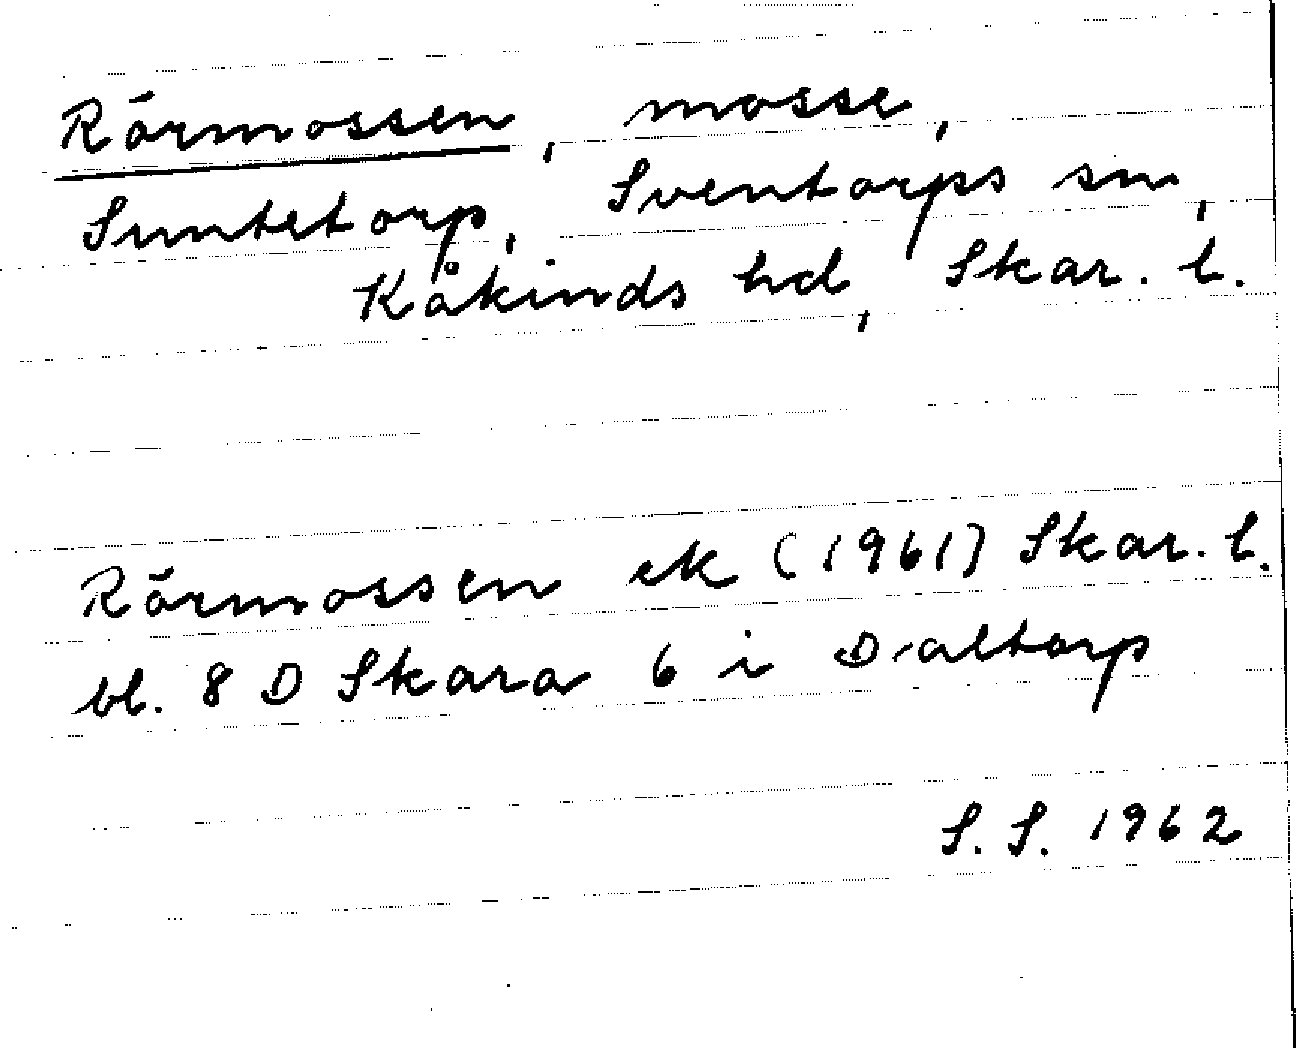 Rörmossen, mosse,
Suntetorp, Sventorps sn,
Kåkinds hd, Skar. l.
Rörmossen ek (1961) Skar. l.
bl. 8 D Skara 6 i Daltorp
S. S. 1962